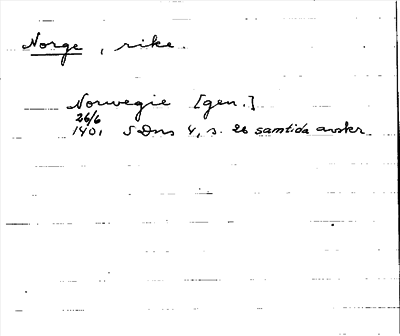 Norge, rike.
Norwegie [gen.]
26/6
1401 SDns 4, s. 26 samtida avskr.